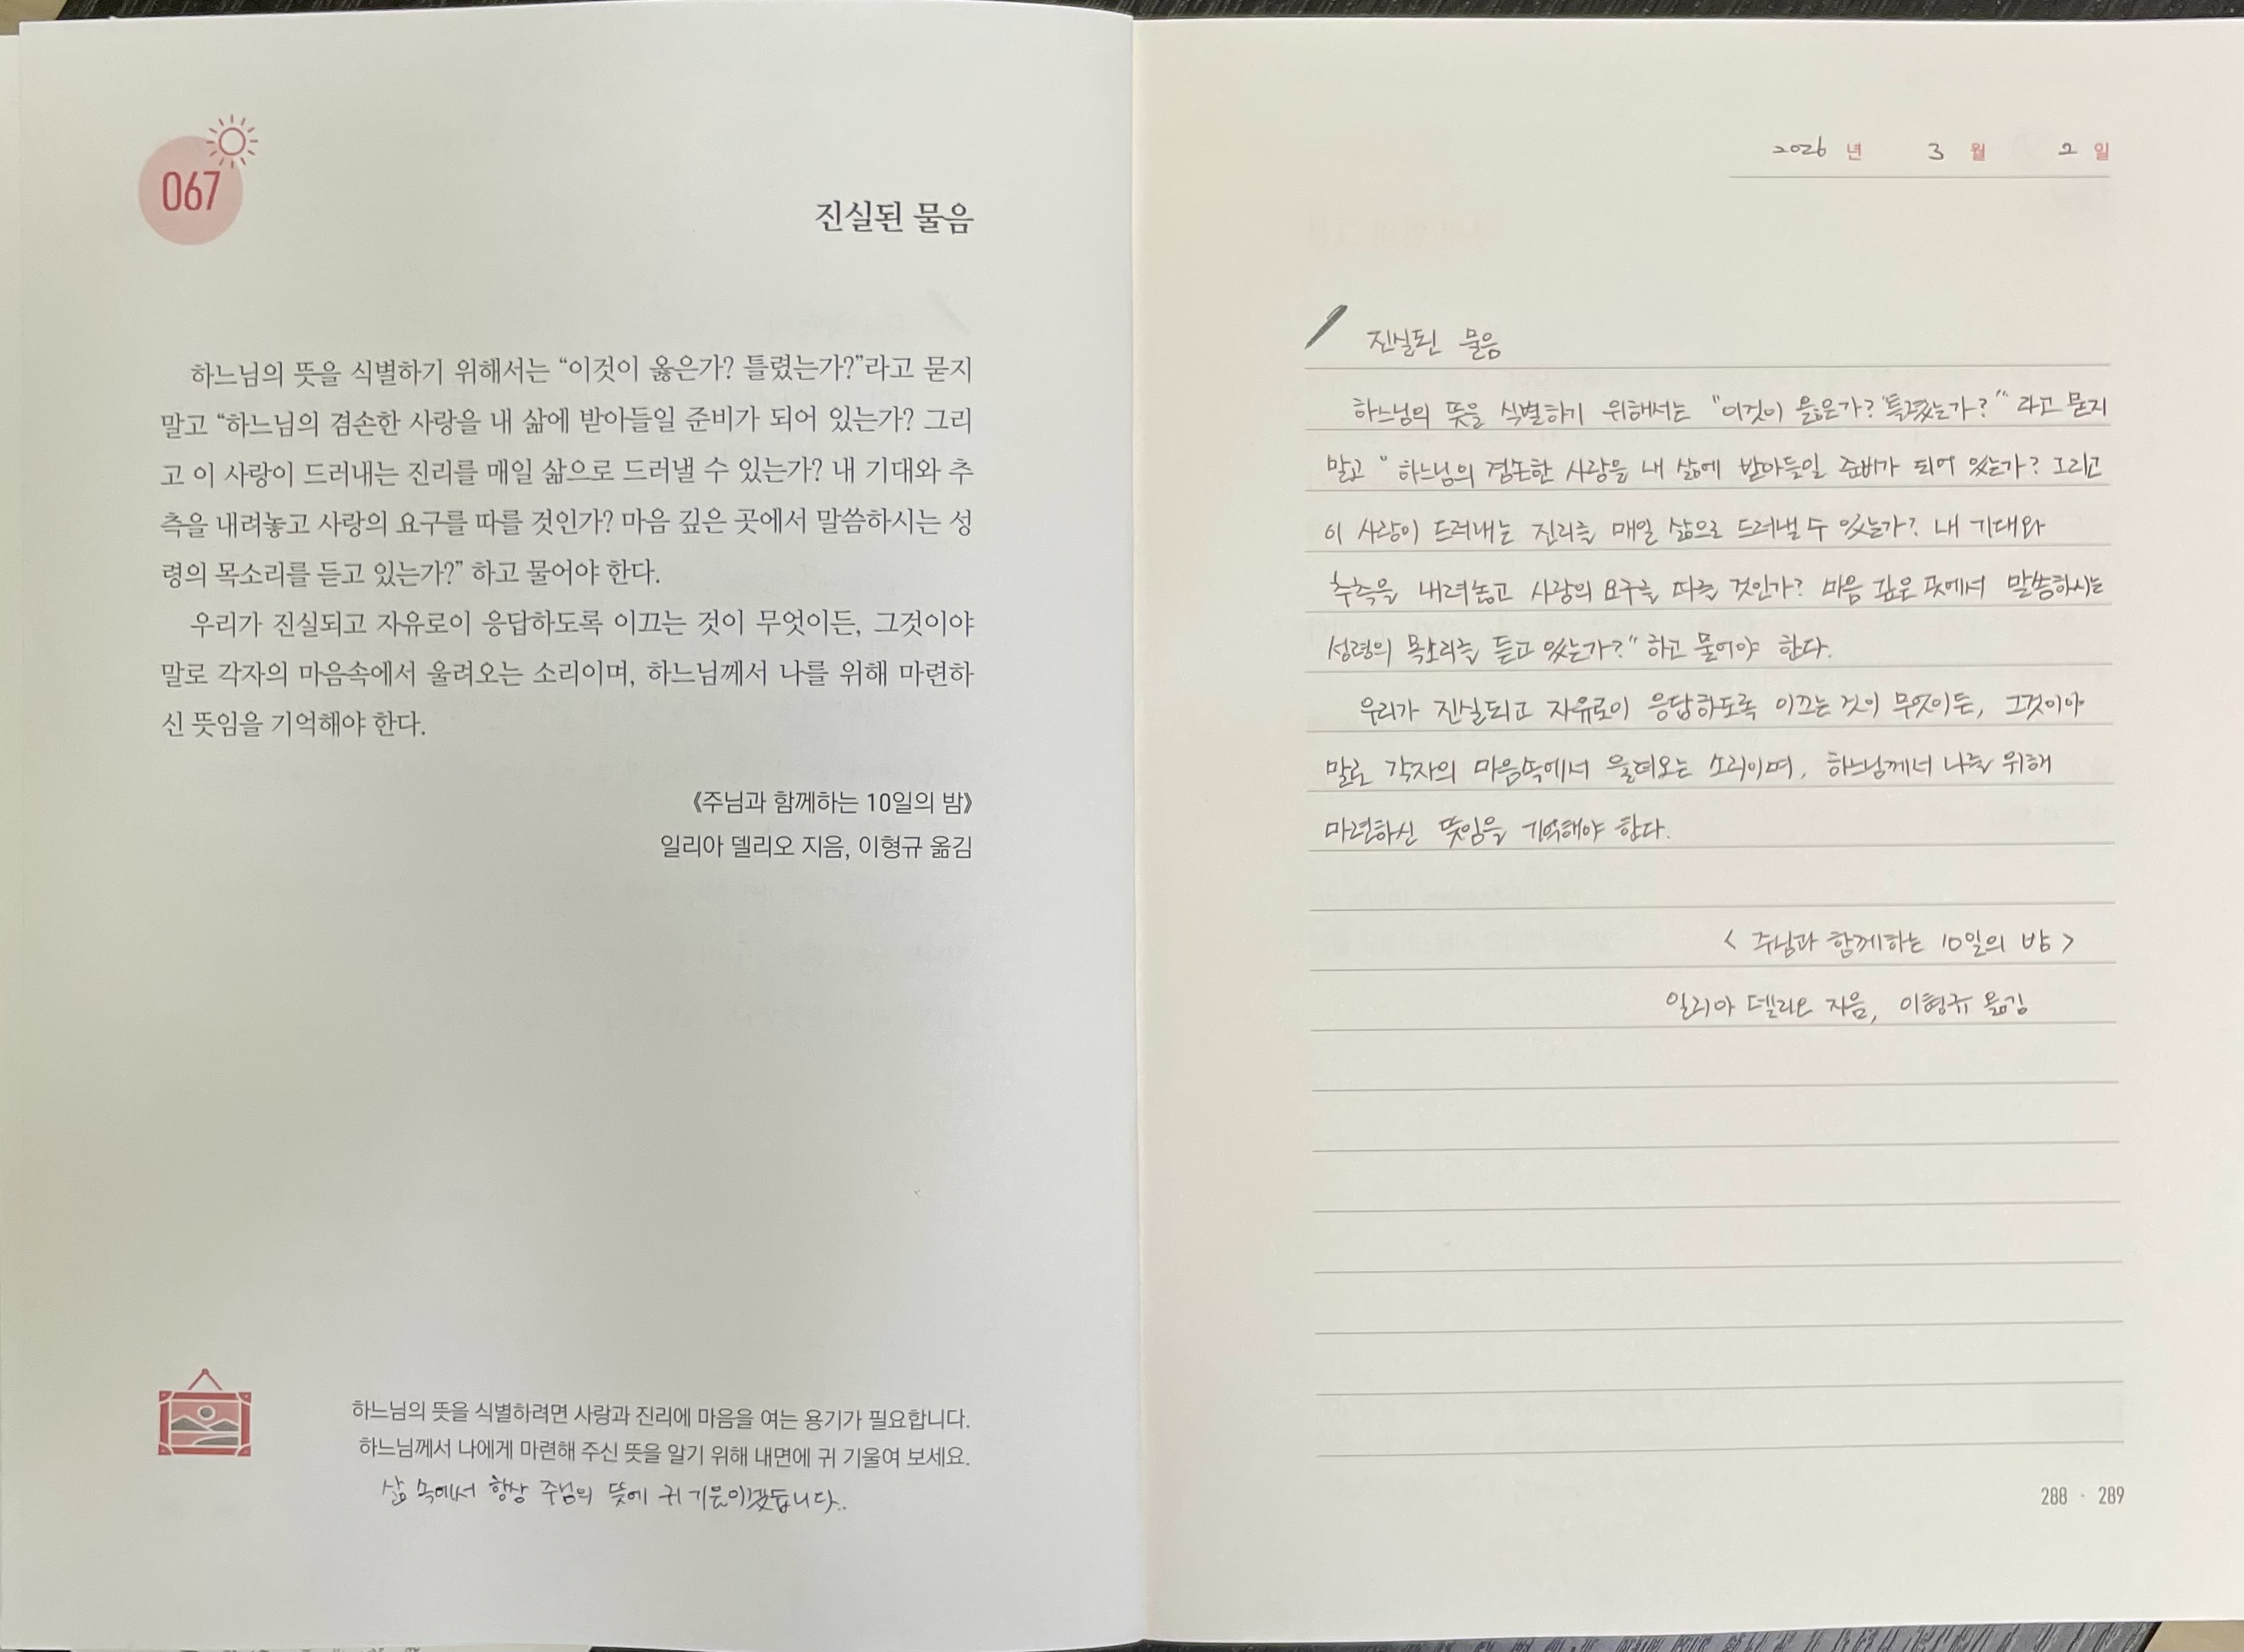 067
진실된 물음
하느님의 뜻을 식별하기 위해서는 “이것이 옳은가? 틀렸는가?”라고 묻지
말고 “하느님의 겸손한 사랑을 내 삶에 받아들일 준비가 되어 있는가? 그리
고 이 사랑이 드러내는 진리를 매일 삶으로 드러낼 수 있는가? 내 기대와 추
측을 내려놓고 사랑의 요구를 따를 것인가? 마음 깊은 곳에서 말씀하시는 성
령의 목소리를 듣고 있는가?” 하고 물어야 한다.
우리가 진실되고 자유로이 응답하도록 이끄는 것이 무엇이든, 그것이야
말로 각자의 마음속에서 울려오는 소리이며, 하느님께서 나를 위해 마련하
신 뜻임을 기억해야 한다.
《주님과 함께하는 10일의 밤》
일리아 델리오 지음, 이형규 옮김
하느님의 뜻을 식별하려면 사랑과 진리에 마음을 여는 용기가 필요합니다.
하느님께서 나에게 마련해 주신 뜻을 알기 위해 내면에 귀 기울여 보세요.
삶 속에서 항상 주님의 뜻에 귀 기울이겠습니다..
2026 년 3 월 2 일
진실된 물음
하느님의 뜻을 식별하기 위해서는 "이것이 옳은가? 틀렸는가?" 라고 묻지
말고 "하느님의 겸손한 사랑을 내 삶에 받아들일 준비가 되어 있는가? 그리고
이 사랑이 드러내는 진리를 매일 삶으로 드러낼 수 있는가? 내 기대와
추측을 내려놓고 사랑의 요구를 따를 것인가? 마음 깊은 곳에서 말씀하시는
성령의 목소리를 듣고 있는가?" 하고 물어야 한다.
우리가 진실되고 자유로이 응답하도록 이끄는 것이 무엇이든, 그것이야
말로 각자의 마음속에서 울려오는 소리이며, 하느님께서 나를 위해
마련하신 뜻임을 기억해야 한다.
< 주님과 함께하는 10일의 밤 >
일리아 델리오 지음, 이형규 옮김
288 · 289